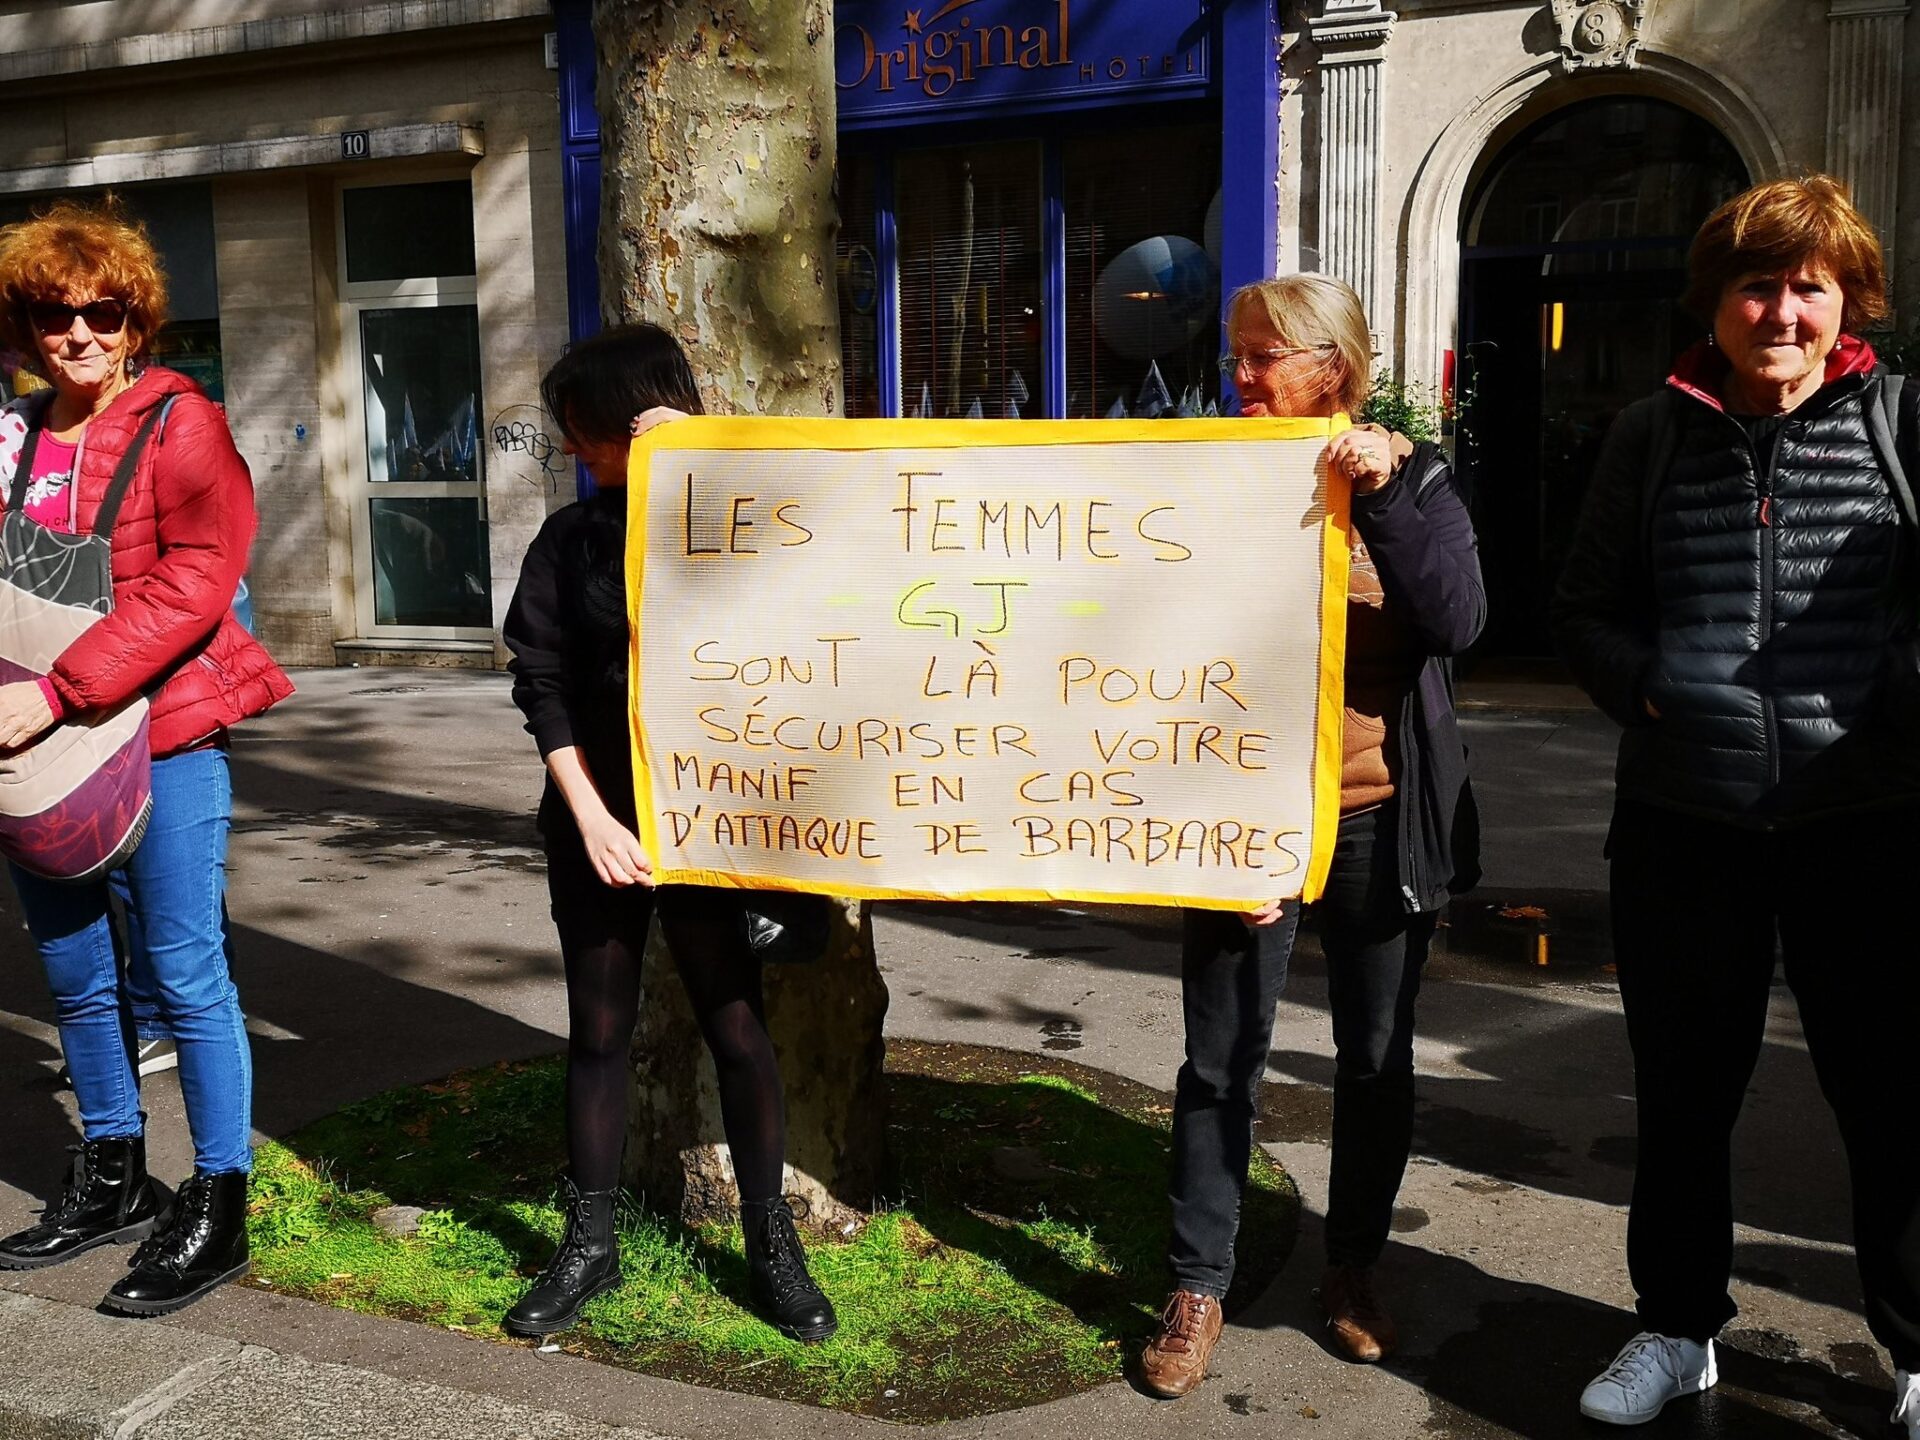 Original
HÔTEL
8
10
LES FEMMES
- GJ -
SONT LÀ POUR
SÉCURISER VOTRE
MANIF EN CAS
D'ATTAQUE DE BARBARES